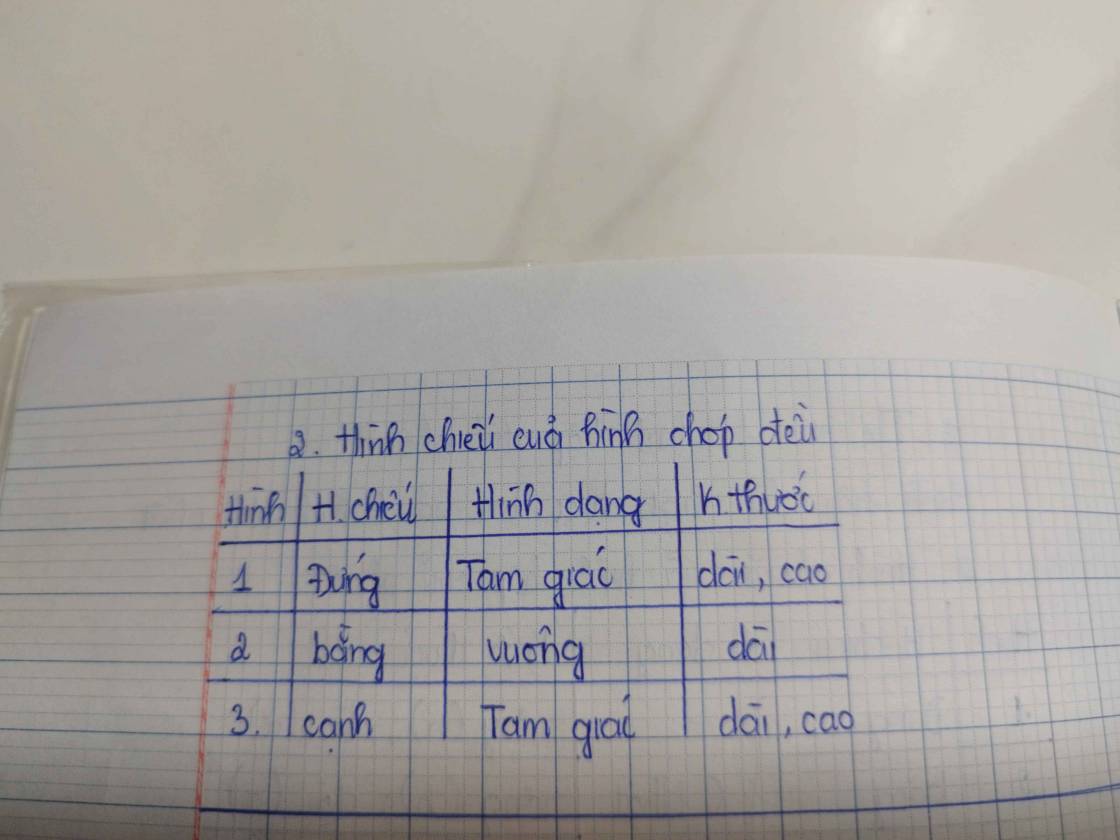 2. Hình chiếu của hình chóp đều
Hình H. chiếu Hình dạng K thước
1 Đứng Tam giác dài, cao
2 bằng vuông dài
3. cạnh Tam giác dài, cao